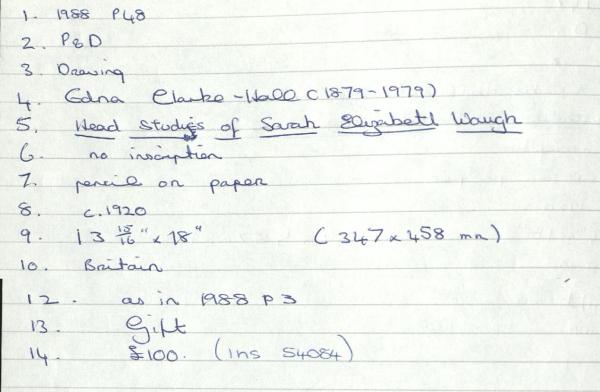 1. 1988 P48
2. P&D
3. Drawing
4. Edna Clarke-Hall (1879-1979)
5. Head Studies of Sarah Elizabeth Waugh
6. no inscription
7. pencil on paper
8. c.1920
9. 13 15/16" x 18" (347 x 458 mm)
10. Britain
12. as in 1988 P3
13. Gift
14. £100. (ins 54084)